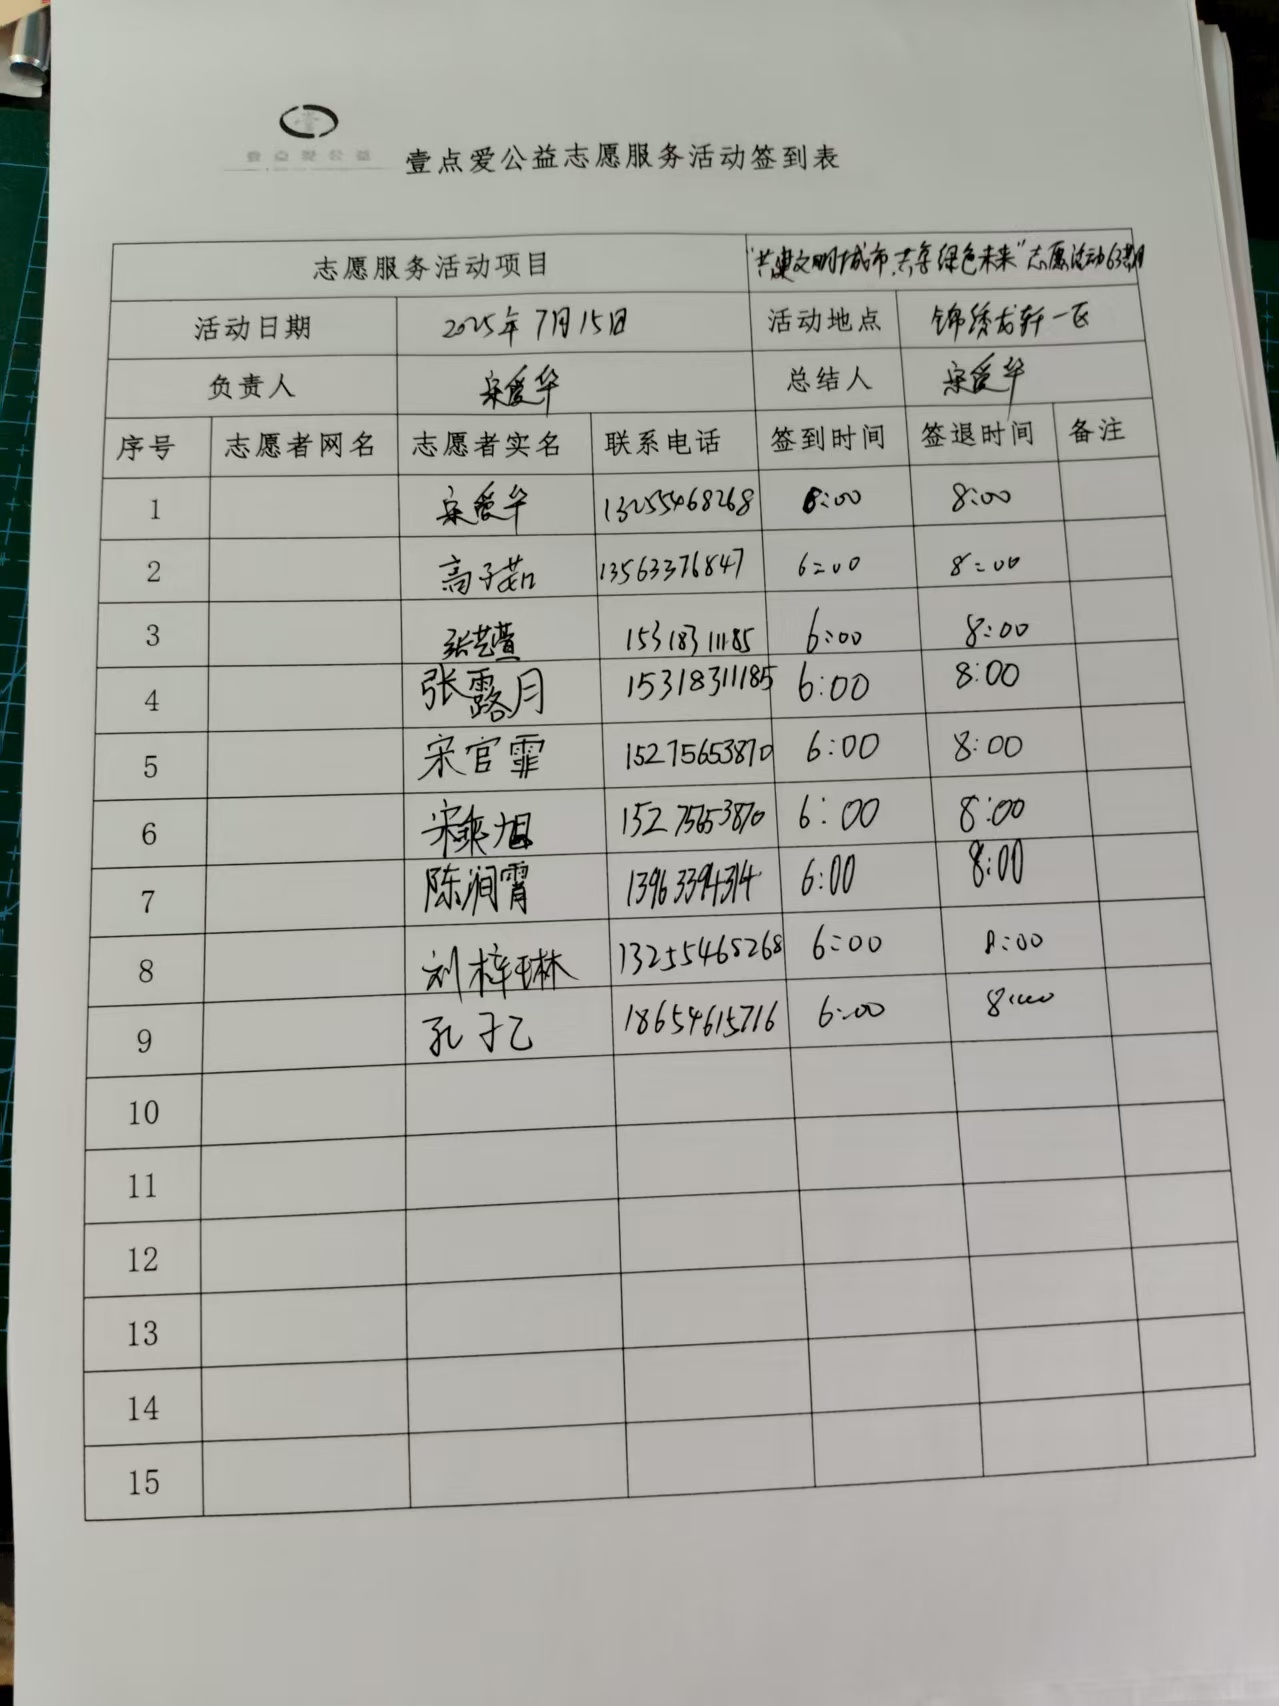 壹点爱公益
壹点爱公益志愿服务活动签到表
志愿服务活动项目 "共建文明城市,共享绿色未来"志愿活动63期
活动日期 2025年7月15日 活动地点 锦绣龙轩一区
负责人 宋爱华 总结人 宋爱华
序号 志愿者网名 志愿者实名 联系电话 签到时间 签退时间 备注
1 宋爱华 13255468268 6:00 8:00
2 高子茹 13563376847 6:00 8:00
3 张艺萱 15318311185 6:00 8:00
4 张露月 15318311185 6:00 8:00
5 宋官霏 15275653870 6:00 8:00
6 宋乘旭 15275653870 6:00 8:00
7 陈润霄 13963394314 6:00 8:00
8 刘梓琳 13255468268 6:00 8:00
9 孔子乙 18654615716 6:00 8:00
10
11
12
13
14
15